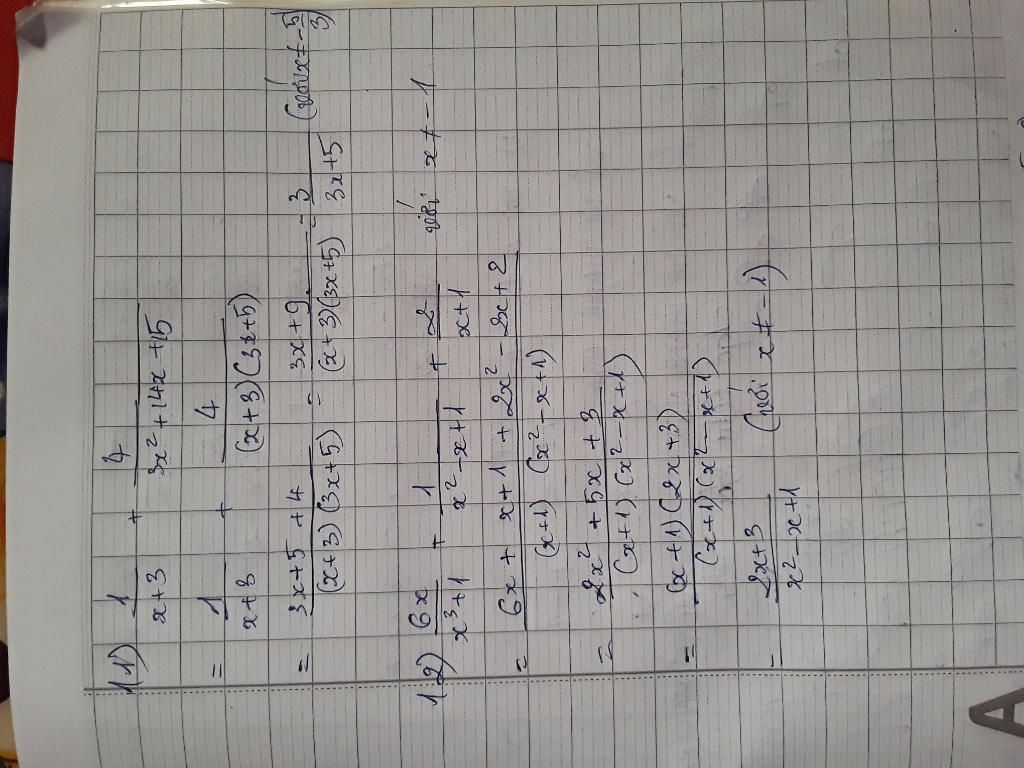 11) 1/(x+3) + 4/(3x²+14x+15)
= 1/(x+3) + 4/((x+3)(3x+5))
= (3x+5+4)/((x+3)(3x+5)) = (3x+9)/((x+3)(3x+5)) = 3/(3x+5) (với x ≠ -5/3)
12) 6x/(x³+1) + 1/(x²-x+1) + 2/(x+1) với x ≠ -1
= (6x + x+1 + 2x² - 2x+2)/((x+1)(x²-x+1))
= (2x²+5x+3)/((x+1)(x²-x+1))
= ((x+1)(2x+3))/((x+1)(x²-x+1))
= (2x+3)/(x²-x+1) (với x ≠ -1)
A